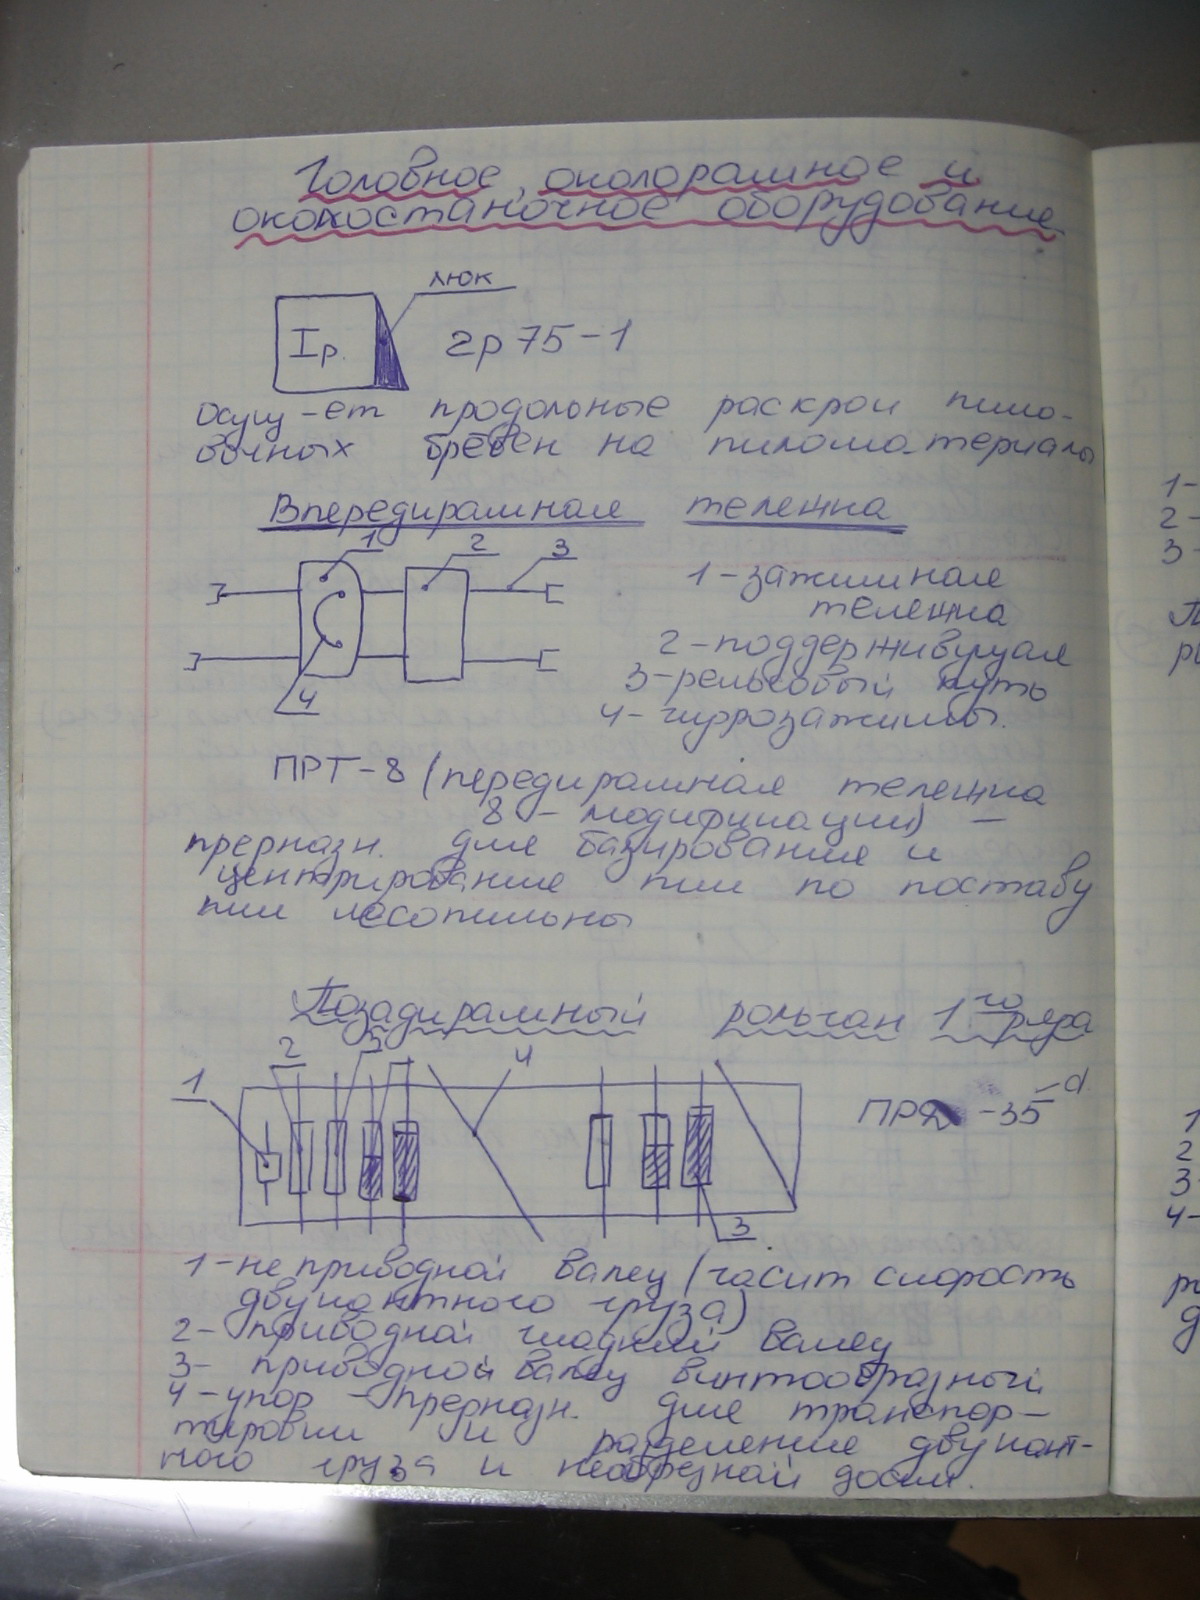 Головное, околорамное и
околостаночное оборудование
люк
Iр.
2р 75-1
Осущ-ет продольные раскрои пило-
вочных брёвен на пиломатериалы
Впередирамная тележка
1
2
3
4
1-зажимная
тележка
2-поддерживущая
3-рельсовый путь
4-гидрозажимы.
ПРТ-8 (передирамная тележка
8 - модификации) -
предназн. для базирование и
центрирование пил по поставу
пил лесопильны
Позадирамный рольган 1го ряда
1
2
3
4
3
ПРД -35 d.
1-неприводной валец (гасит скорость
двукантного груза)
2- приводной гладкий валец
3- приводной валец винтообразный
4-упор - предназн. для транспор-
тировки и разделение двукант-
ного груза и необрезной доски.
1-
2-
3-
1
2
3-
4-